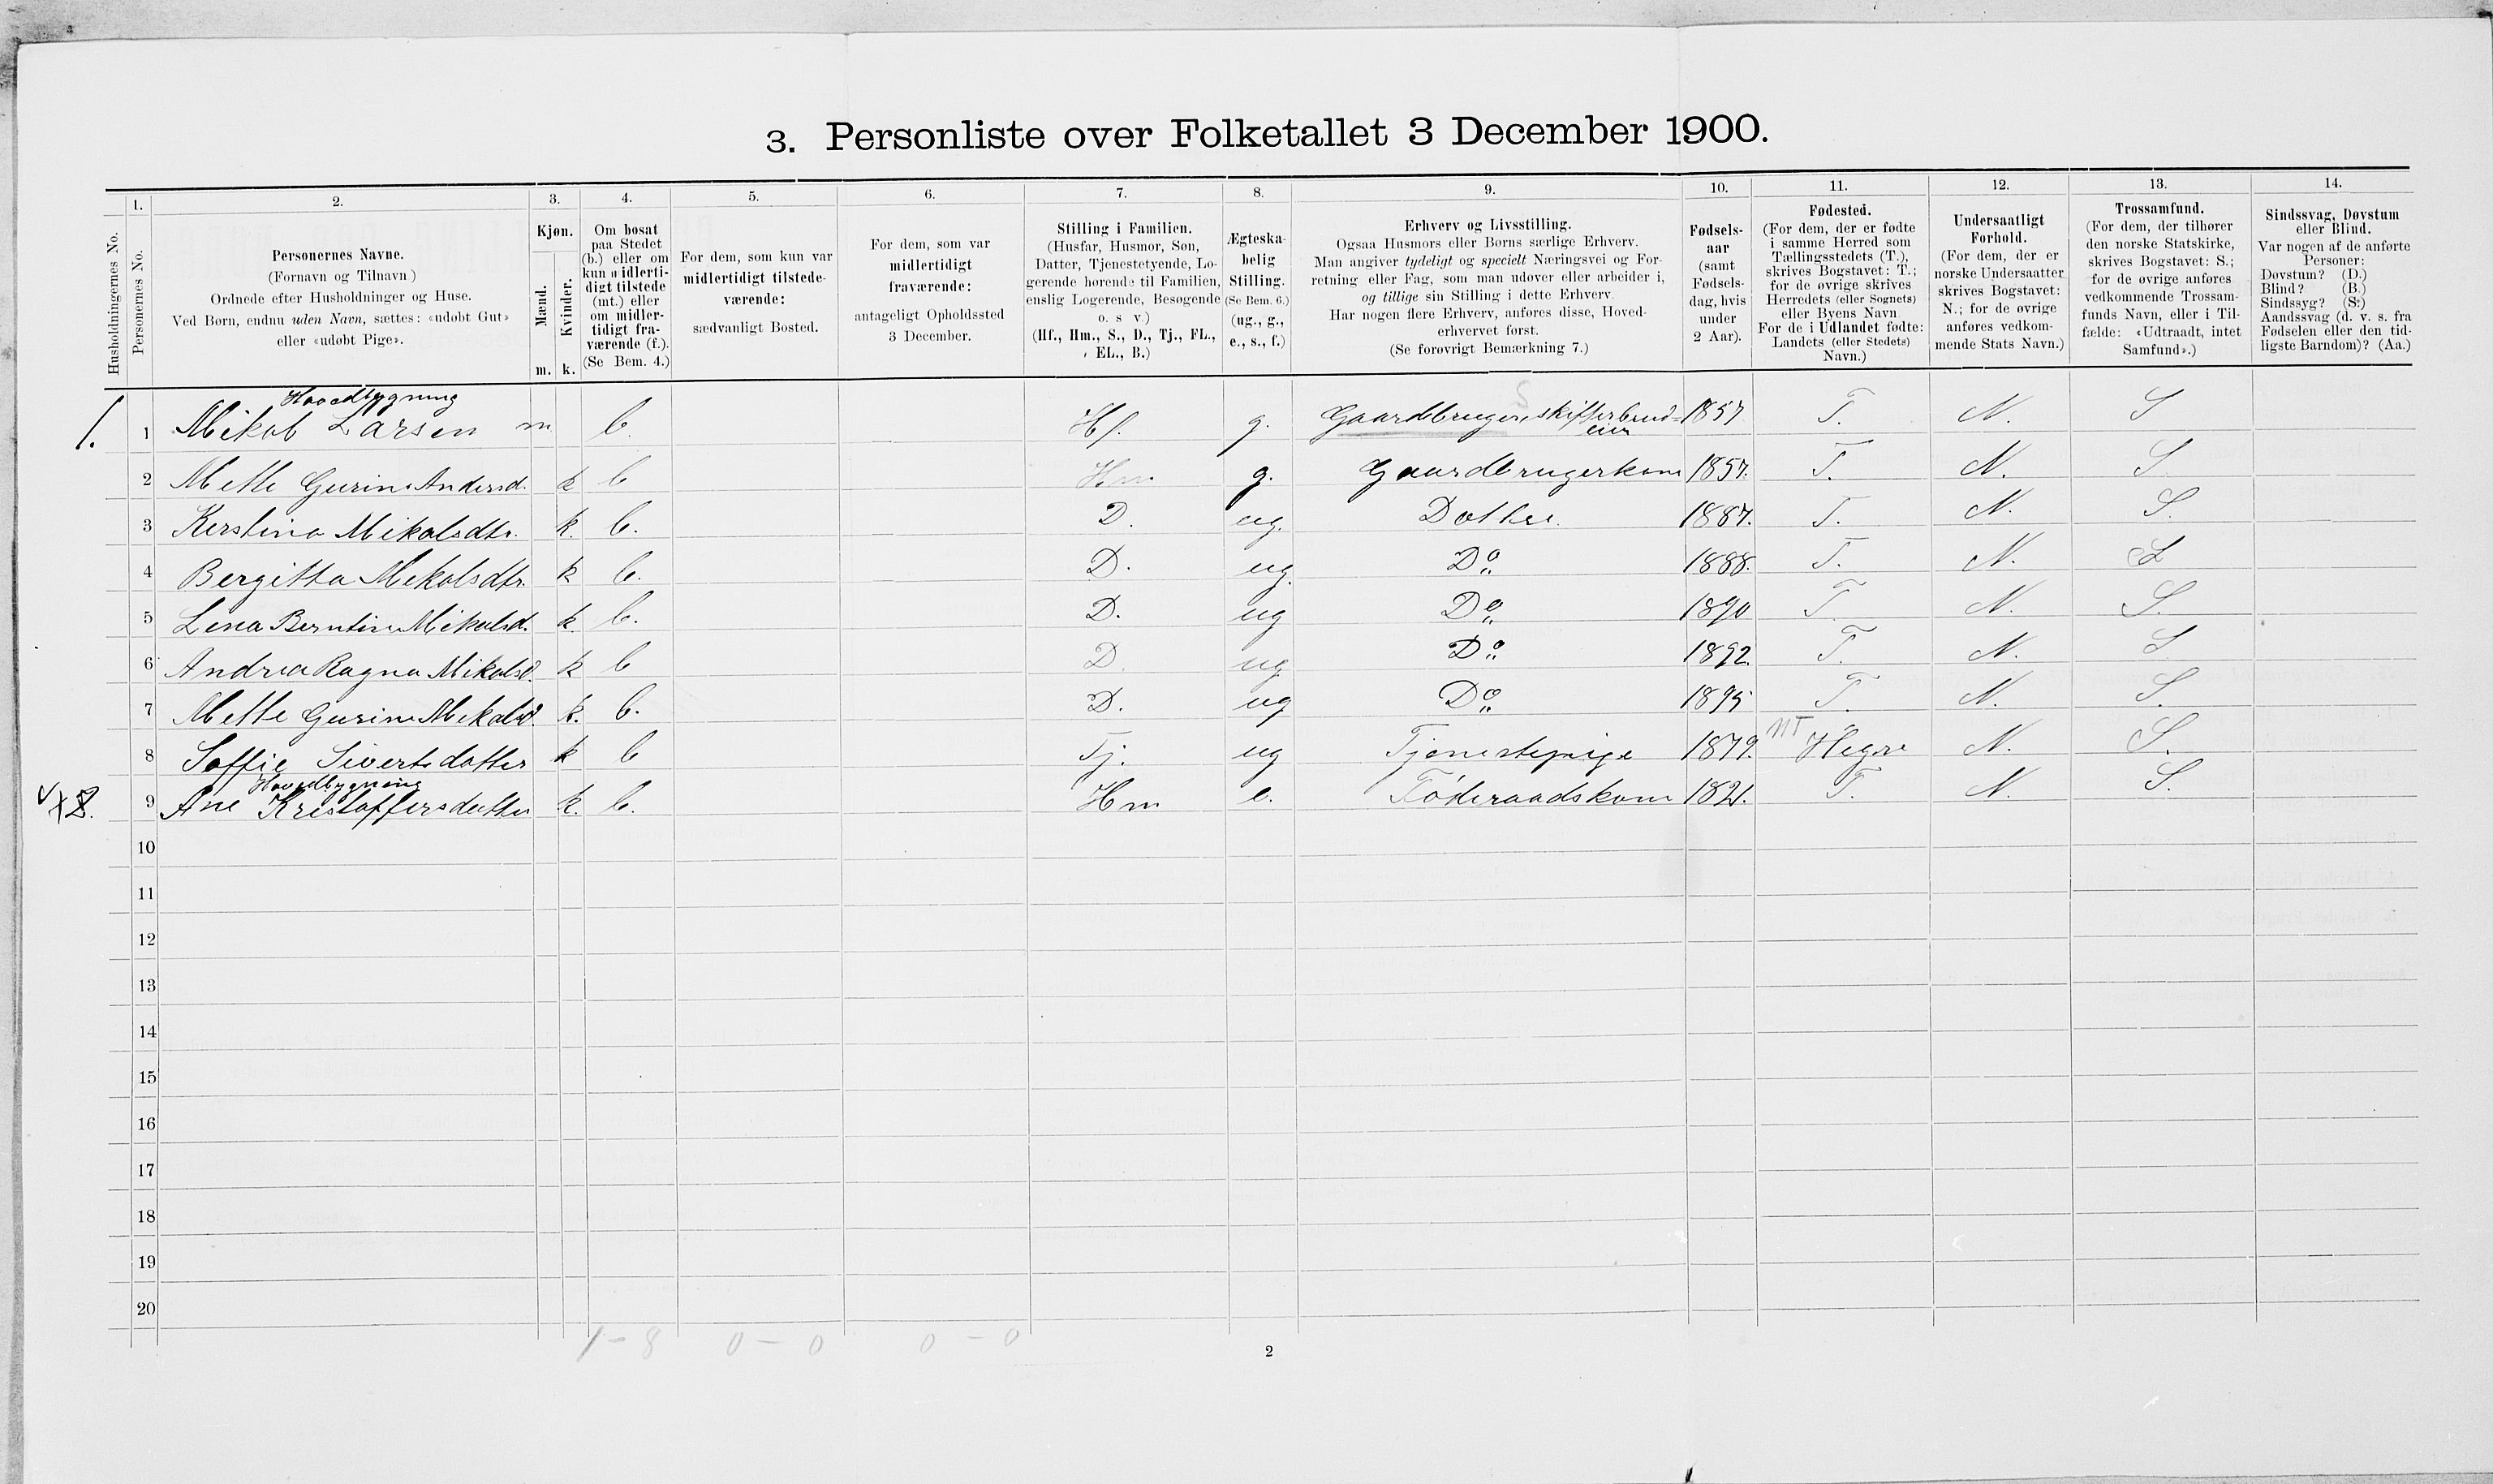 3. Personliste over Folketallet 3 December 1900.
Husholdningernes No.
1. Personernes No.
2. Personernes Navne.
(Fornavn og Tilnavn)
Ordnede efter Husholdninger og Huse.
Ved Børn, endnu uden Navn, sættes: «udøbt Gut»
eller «udøbt Pige».
3. Kjøn.
Mænd. m.
Kvinder. k.
4. Om bosat
paa Stedet
(b.) eller om
kun midlerti-
digt tilstede
(mt.) eller
om midler-
tidigt fra-
værende (f.).
(Se Bem. 4.)
5. For dem, som kun var
midlertidigt tilstede-
værende:
sædvanligt Bosted.
6. For dem, som var
midlertidigt
fraværende:
antageligt Opholdssted
3 December.
7. Stilling i Familien.
(Husfar, Husmor, Søn,
Datter, Tjenestetyende, Lo-
gerende hørende til Familien,
enslig Logerende, Besøgende
o. s v.)
(Hf., Hm., S., D., Tj., FL.,
EL., B.)
8. Ægteska-
belig
Stilling.
(Se Bem. 6.)
(ug., g.,
e., s., f.)
9. Erhverv og Livsstilling.
Ogsaa Husmors eller Børns særlige Erhverv.
Man angiver tydeligt og specielt Næringsvei og For-
retning eller Fag, som man udøver eller arbeider i,
og tillige sin Stilling i dette Erhverv.
Har nogen flere Erhverv, anføres disse, Hoved-
erhvervet først.
(Se forøvrigt Bemærkning 7.)
10. Fødsels-
aar
(samt
Fødsels-
dag, hvis
under
2 Aar).
11. Fødested.
(For dem, der er fødte
i samme Herred som
Tællingsstedets (T.),
skrives Bogstavet: T.;
for de øvrige skrives
Herredets (eller Sognets)
eller Byens Navn
For de i Udlandet fødte:
Landets (eller Stedets)
Navn.)
12. Undersaatligt
Forhold.
(For dem, der er
norske Undersaatter
skrives Bogstavet:
N.; for de øvrige
anføres vedkom-
mende Stats Navn.)
13. Trossamfund.
(For dem, der tilhører
den norske Statskirke,
skrives Bogstavet: S.;
for de øvrige anføres
vedkommende Trossam-
funds Navn, eller i Til-
fælde: «Udtraadt, intet
Samfund».)
14. Sindssvag, Døvstum
eller Blind.
Var nogen af de anførte
Personer:
Døvstum? (D.)
Blind? (B.)
Sindssyg? (S.)
Aandssvag (d. v. s. fra
Fødselen eller den tid-
ligste Barndom)? (Aa.)
Hovedbygning
1. 1 Mikal Larsen m b. Hf. g. Gaardbruger, skifferbrud= eier 1857 T. N. S
2 Mette Gurine Andersd. k b Hm g. Gaardbrugerkone 1857. T. N. S
3 Kerstina Mikalsdtr. k. b. D. ug. Datter 1887. T. N. S.
4 Bergitta Mikalsdtr. k b. D. ug. Do 1888. T. N. S
5 Lina Berntine Mikalsd. k. b. D. ug Do 1890 T. N. S.
6 Andrea Ragna Mikalsd. k b D. ug Do 1892. T. N. S
7 Mette Gurine Mikalsd. k. b. D. ug Do 1895 T. N. S.
8 Soffie Sivertsdatter k b Tj. ug Tjenestepige 1879. NT Hegre N. S.
Hovedbygning
2. 9 Ane Kristoffersdatter k. b. Hm e. Føderaadskone 1821. T. N. S.
10
11
12
13
14
15
16
17
18
19
20
1 - 8 0 - 0 0 - 0
2